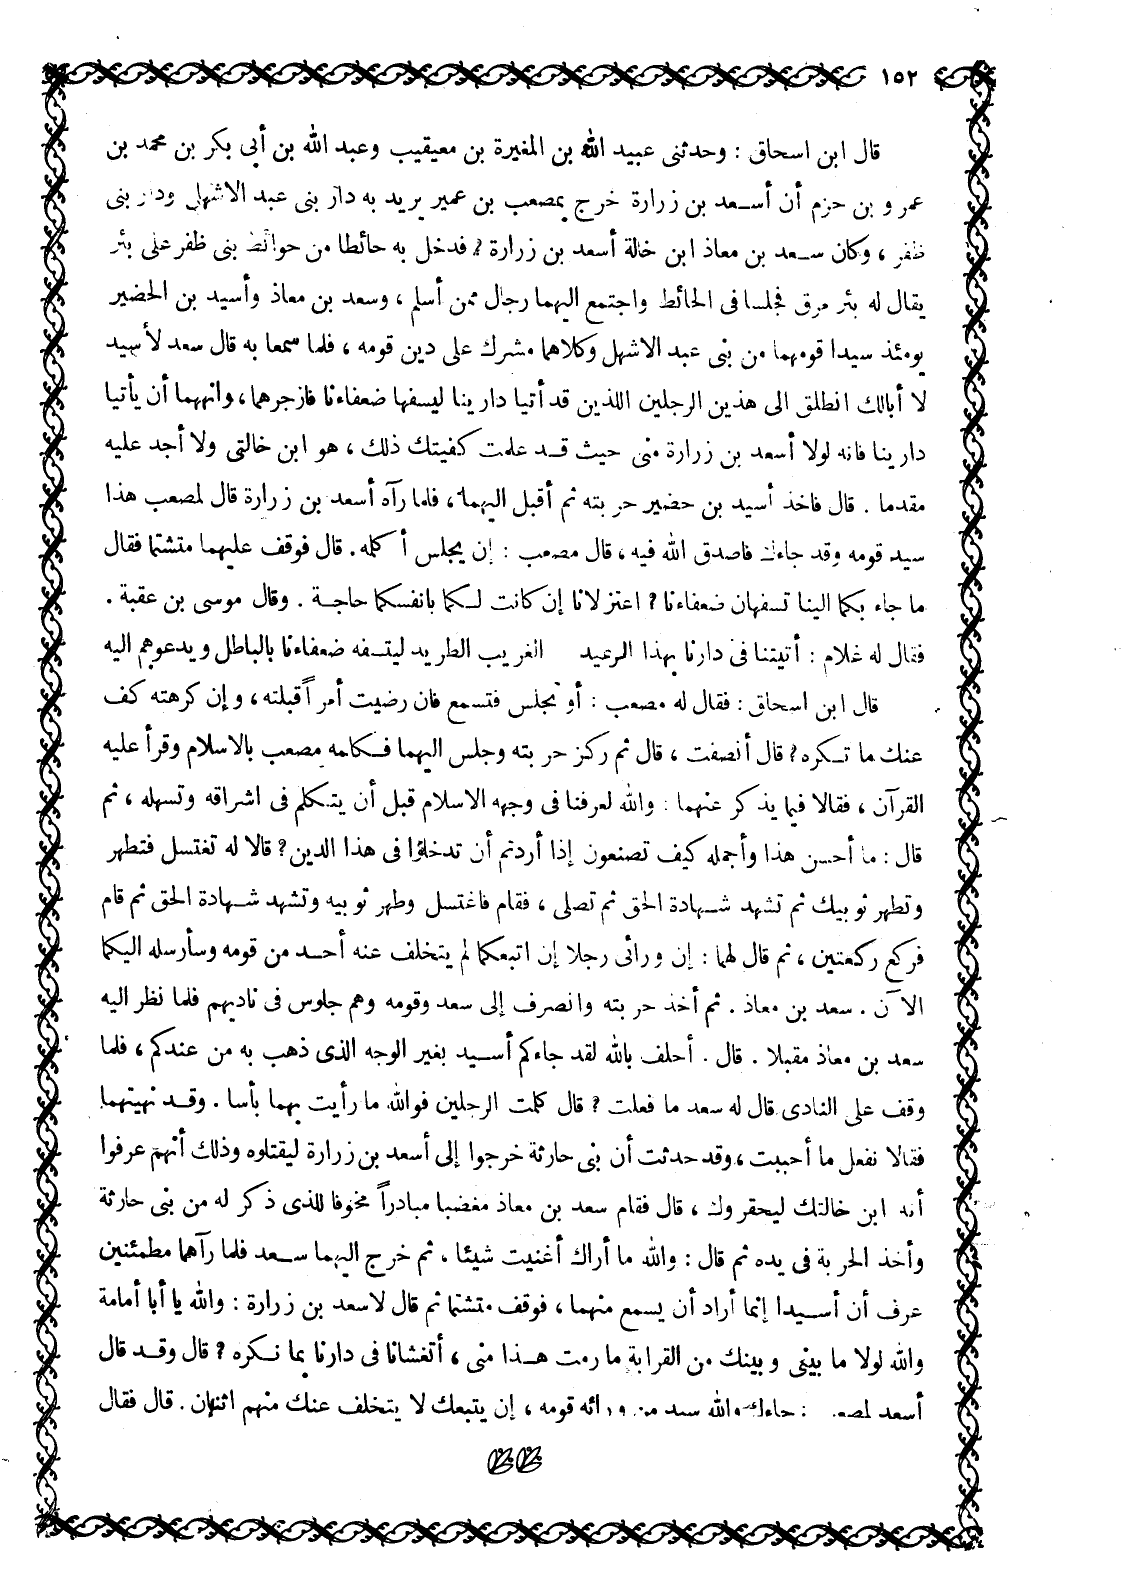 ١٥٢
قال ابن اسحاق : وحدثنى عبيد الله بن المغيرة بن معيقيب وعبد الله بن أبى بكر بن محمد بن
عمرو بن حزم أن أسعد بن زرارة خرج بمصعب بن عمير يريد به دار بنى عبد الاشهل ودار بنى
ظفر ، وكان سعد بن معاذ ابن خالة أسعد بن زرارة ، فدخل به حائطا من حوائط بنى ظفر على بئر
يقال له بئر مرق فجلسا فى الحائط واجتمع اليهما رجال ممن أسلم ، وسعد بن معاذ وأسيد بن الحضير
يومئذ سيدا قومهما من بنى عبد الاشهل وكلاهما مشرك على دين قومه ، فلما سمعا به قال سعد لأسيد
لا أبالك انطلق الى هذين الرجلين اللذين قد أتيا دارينا ليسفها ضعفاءنا فازجرهما ، وانههما أن يأتيا
دارينا فانه لولا أسعد بن زرارة منى حيث قد علمت كفيتك ذلك ، هو ابن خالتى ولا أجد عليه
مقدما . قال فاخذ أسيد بن حضير حربته ثم أقبل اليهما ، فلما رآه أسعد بن زرارة قال لمصعب هذا
سيد قومه وقد جاءك فاصدق الله فيه ، قال مصعب : إن يجلس أكلمه . قال فوقف عليهما متشتما فقال
ما جاء بكما الينا تسفهان ضعفاءنا ? اعتزلانا إن كانت لكما بانفسكما حاجة . وقال موسى بن عقبة .
فقال له غلام : أتيتنا فى دارنا بهذا الرعيد الغريب الطريد ليتسفه ضعفاءنا بالباطل ويدعوهم اليه
قال ابن اسحاق : فقال له مصعب : أو تجلس فتسمع فان رضيت أمراً قبلته ، وإن كرهته كف
عنك ما تكره ? قال أنصفت ، قال ثم ركز حربته وجلس اليهما فكلمه مصعب بالاسلام وقرأ عليه
القرآن ، فقالا فيما يذكر عنهما : والله لعرفنا فى وجهه الاسلام قبل أن يتكلم فى اشراقه وتسهله ، ثم
قال : ما أحسن هذا وأجمله كيف تصنعون إذا أردتم أن تدخلوا فى هذا الدين ? قالا له تغتسل فتطهر
وتطهر ثوبيك ثم تشهد شهادة الحق ثم تصلى ، فقام فاغتسل وطهر ثوبيه وتشهد شهادة الحق ثم قام
فركع ركعتين ، ثم قال لهما : إن ورائى رجلا إن اتبعكما لم يتخلف عنه أحد من قومه وسأرسله اليكما
الآن . سعد بن معاذ . ثم أخذ حربته وانصرف إلى سعد وقومه وهم جلوس فى ناديهم فلما نظر اليه
سعد بن معاذ مقبلا . قال . أحلف بالله لقد جاءكم أسيد بغير الوجه الذى ذهب به من عندكم ، فلما
وقف على النادى قال له سعد ما فعلت ? قال كلمت الرجلين فوالله ما رأيت بهما بأسا . وقد نهيتهما
فقالا نفعل ما أحببت ، وقد حدثت أن بنى حارثة خرجوا إلى أسعد بن زرارة ليقتلوه وذلك أنهم عرفوا
أنه ابن خالتك ليحقروك ، قال فقام سعد بن معاذ مغضبا مبادراً مخوفا للذى ذكر له من بنى حارثة
وأخذ الحربة فى يده ثم قال : والله ما أراك أغنيت شيئا ، ثم خرج اليهما سعد فلما رآهما مطمئنين
عرف أن أسيدا إنما أراد أن يسمع منهما ، فوقف متشتما ثم قال لاسعد بن زرارة : والله يا أبا أمامة
والله لولا ما بينى وبينك من القرابة ما رمت هذا منى ، أتغشانا فى دارنا بما نكره ? قال وقد قال
أسعد لمصعب : جاءك والله سيد من ورائه قومه ، إن يتبعك لا يتخلف عنك منهم اثنان . قال فقال